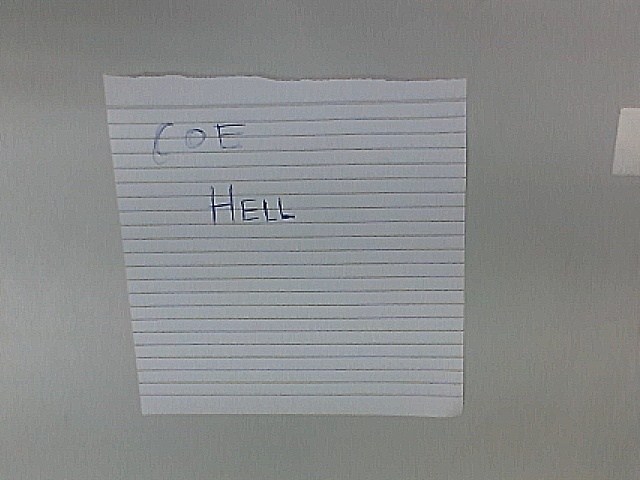 COE
HELL